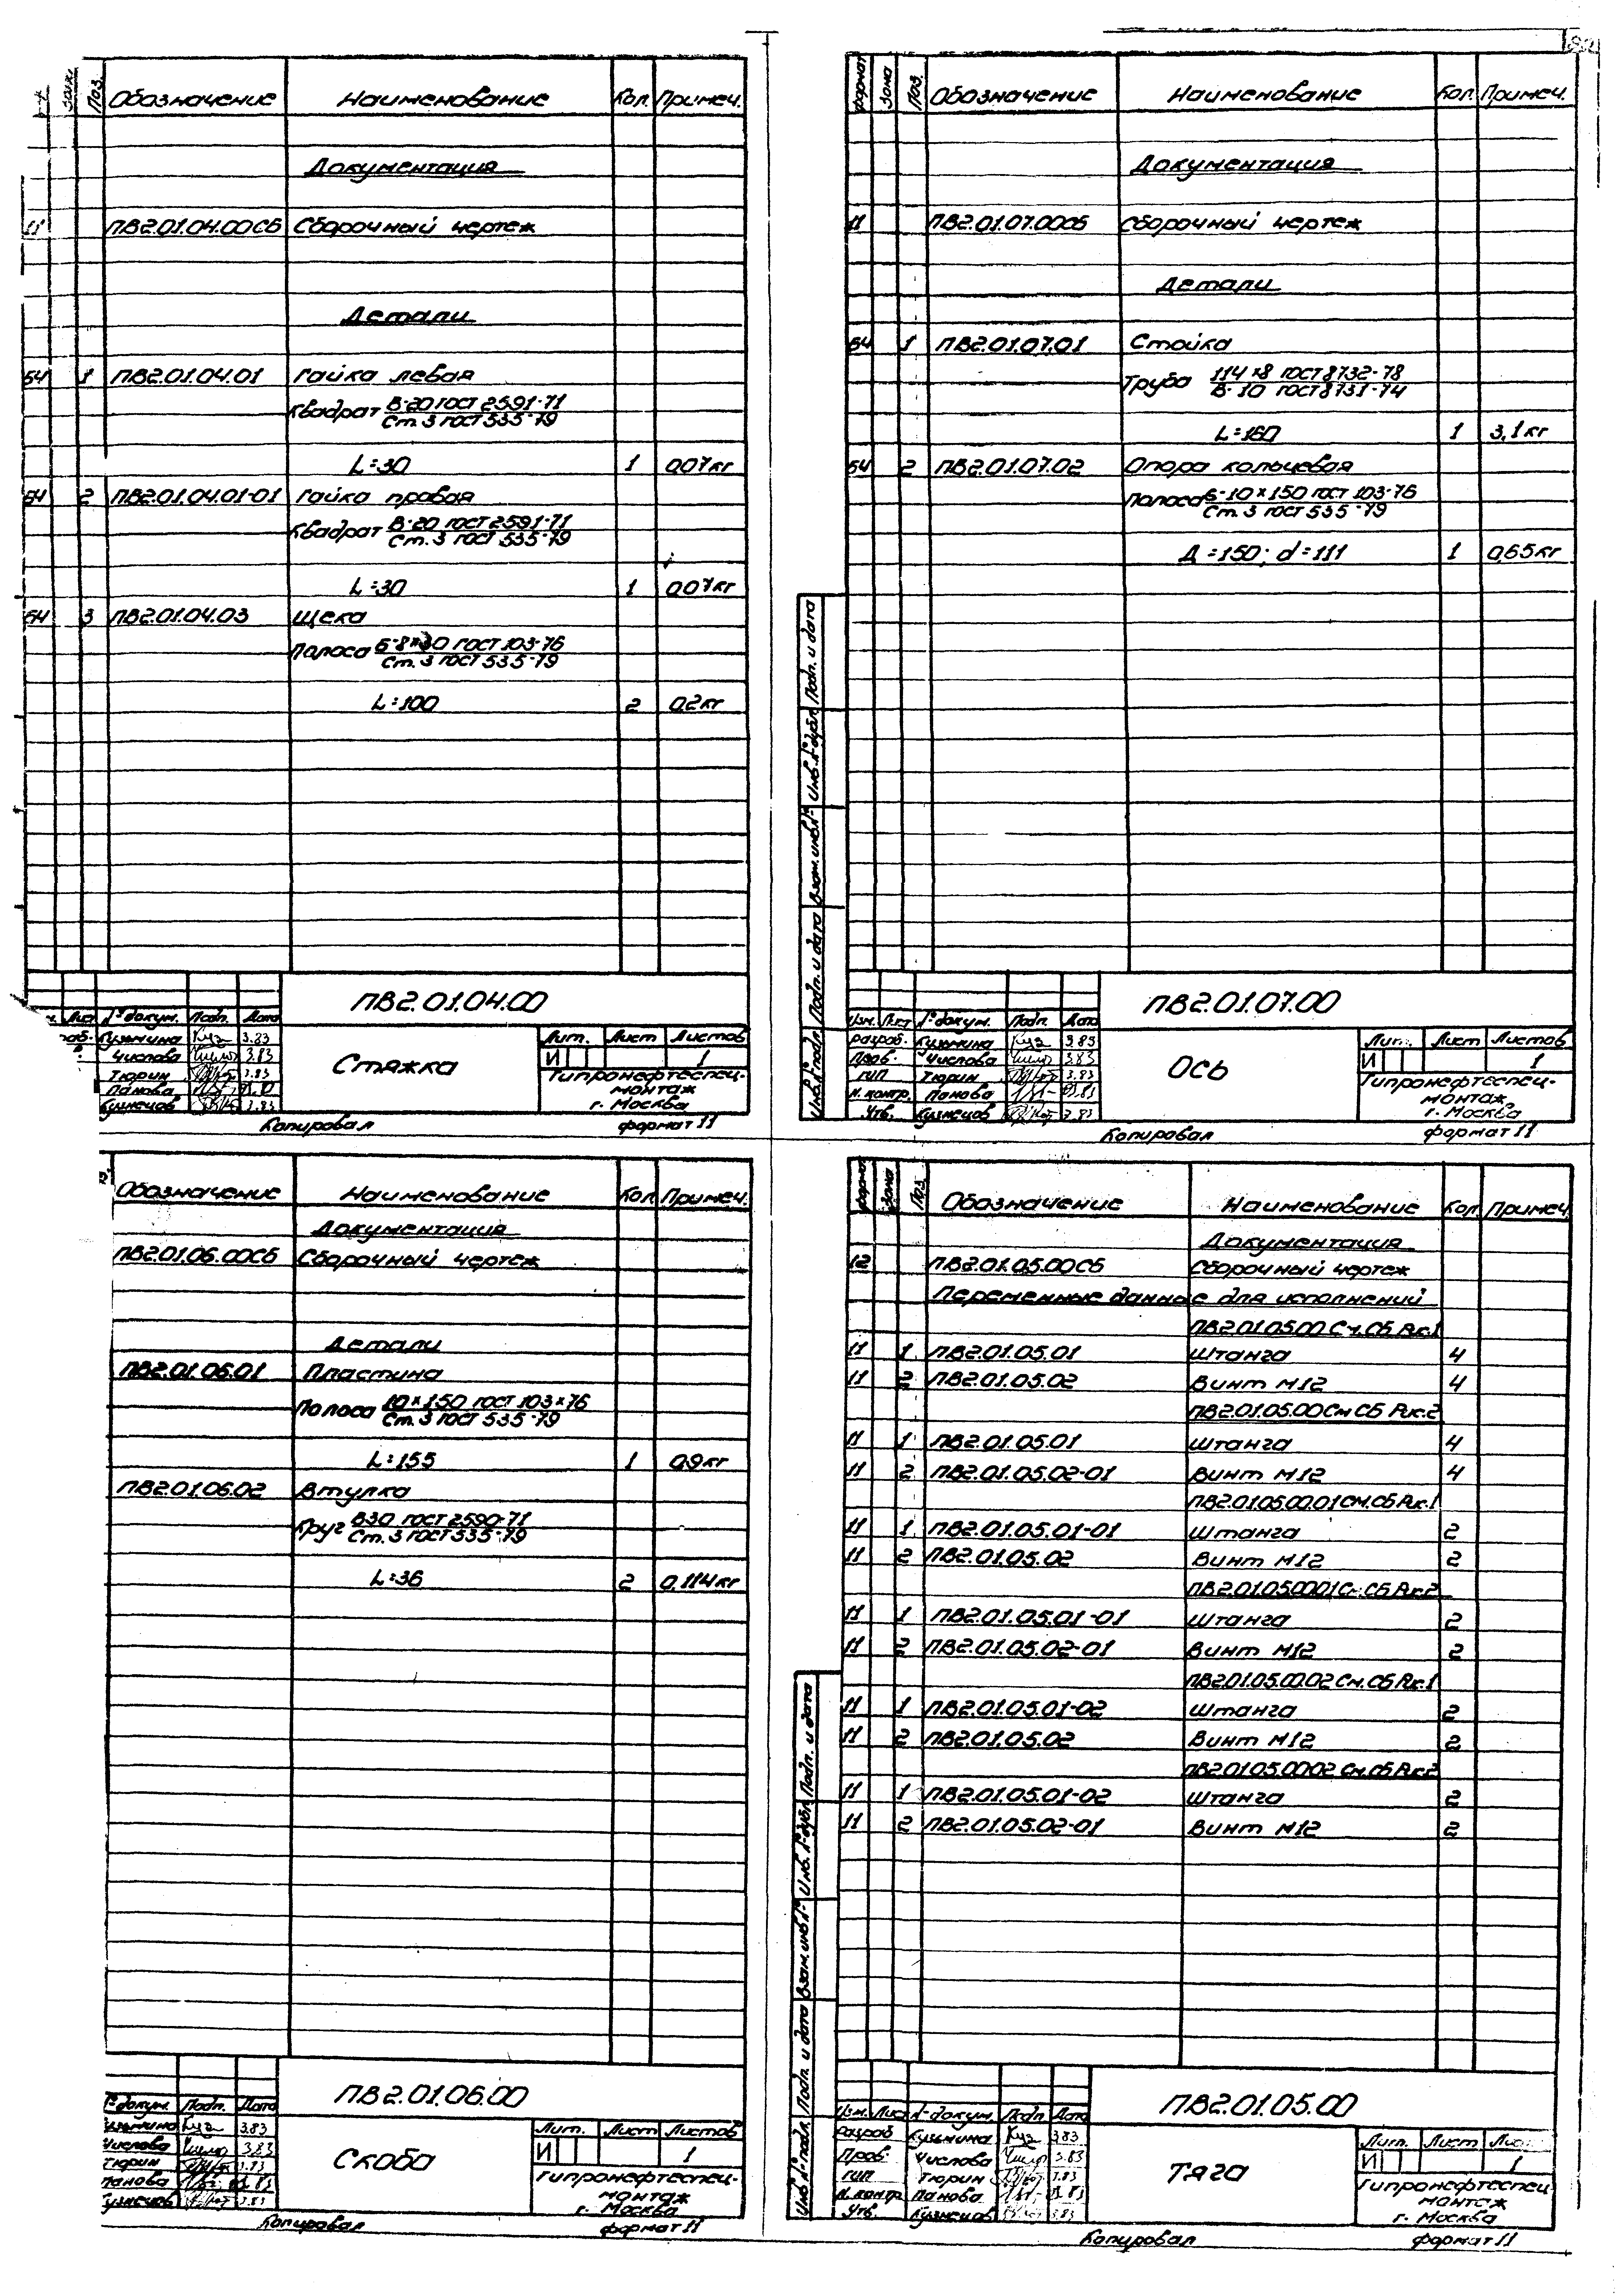 Зона Поз. Обозначение Наименование Кол. Примеч.
Документация
11 ПВ2.01.04.00СБ Сборочный чертеж
Детали
БЧ 1 ПВ2.01.04.01 Гайка левая
Квадрат В-20 ГОСТ 2591-71
Ст. 3 ГОСТ 535-79
L=30 1 0,07кг
БЧ 2 ПВ2.01.04.01-01 Гайка правая
Квадрат В-20 ГОСТ 2591-71
Ст. 3 ГОСТ 535-79
L=30 1 0,07кг
БЧ 3 ПВ2.01.04.03 Щека
Полоса Б-8×30 ГОСТ 103-76
Ст. 3 ГОСТ 535-79
L=100 2 0,2кг
ПВ2.01.04.00
Лист № докум. Подп. Дата
Кузьмина 3.83
Числова 3.83
Тюрин 3.83
Панова
Кузнецов 3.83
Стяжка
Лит. Лист Листов
И 1
Гипронефтеспец-
монтаж
г. Москва
Копировал формат 11
Формат Зона Поз. Обозначение Наименование Кол. Примеч.
Документация
11 ПВ2.01.07.00СБ Сборочный чертеж
Детали
БЧ 1 ПВ2.01.07.01 Стойка
Труба 114×8 ГОСТ 8732-78
В-10 ГОСТ 8731-74
L=160 1 3,1кг
БЧ 2 ПВ2.01.07.02 Опора кольцевая
Полоса Б-10×150 ГОСТ 103-76
Ст. 3 ГОСТ 535-79
Д=150; d=111 1 0,65кг
Инв.№ подл. Подп. и дата Взам.инв.№ Инв.№ дубл. Подп. и дата
ПВ2.01.07.00
Изм. Лист № докум. Подп. Дата
Разраб. Кузьмина 3.83
Пров. Числова 3.83
ГИП Тюрин 3.83
Н. контр. Панова 3.83
Утв. Кузнецов 3.83
Ось
Лит. Лист Листов
И 1
Гипронефтеспец-
монтаж
г. Москва
Копировал формат 11
Обозначение Наименование Кол. Примеч.
Документация
ПВ2.01.06.00СБ Сборочный чертеж
Детали
ПВ2.01.06.01 Пластина
Полоса 10×150 ГОСТ 103×76
Ст. 3 ГОСТ 535-79
L=155 1 0,9кг
ПВ2.01.06.02 Втулка
Круг В30 ГОСТ 2590-71
Ст. 3 ГОСТ 535-79
L=36 2 0,114кг
ПВ2.01.06.00
№ докум. Подп. Дата
Кузьмина 3.83
Числова 3.83
Тюрин 3.83
Панова 3.83
Кузнецов 3.83
Скоба
Лит. Лист Листов
И 1
Гипронефтеспец-
монтаж
г. Москва
Копировал формат 11
Формат Зона Поз. Обозначение Наименование Кол. Примеч.
Документация
12 ПВ2.01.05.00СБ Сборочный чертеж
Переменные данные для исполнений
ПВ2.01.05.00 См. СБ Рис.1
11 1 ПВ2.01.05.01 Штанга 4
11 2 ПВ2.01.05.02 Винт М12 4
ПВ2.01.05.00 См СБ Рис.2
11 1 ПВ2.01.05.01 Штанга 4
11 2 ПВ2.01.05.02-01 Винт М12 4
ПВ2.01.05.00.01 См. СБ Рис.1
11 1 ПВ2.01.05.01-01 Штанга 2
11 2 ПВ2.01.05.02 Винт М12 2
ПВ2.01.05.00.01 См. СБ Рис.2
11 1 ПВ2.01.05.01-01 Штанга 2
11 2 ПВ2.01.05.02-01 Винт М12 2
ПВ2.01.05.00.02 См. СБ Рис.1
11 1 ПВ2.01.05.01-02 Штанга 2
11 2 ПВ2.01.05.02 Винт М12 2
ПВ2.01.05.00.02 См. СБ Рис.2
11 1 ПВ2.01.05.01-02 Штанга 2
11 2 ПВ2.01.05.02-01 Винт М12 2
Инв.№ подл. Подп. и дата Взам.инв.№ Инв.№ дубл. Подп. и дата
ПВ2.01.05.00
Изм. Лист № докум. Подп. Дата
Разраб Кузьмина 3.83
Пров. Числова 3.83
ГИП Тюрин 3.83
Н. контр. Панова 3.83
Утв. Кузнецов 3.83
Тяга
Лит. Лист
И 1
Гипронефтеспец-
монтаж
г. Москва
Копировал формат 11